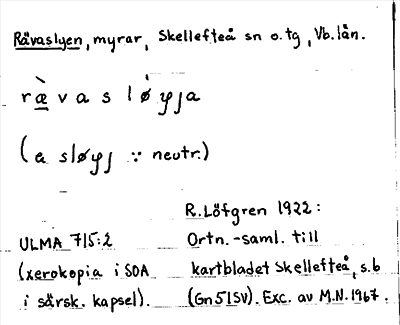 Råvaslyen, myrar, Skellefteå sn o. tg, Vb. län.
ræ̀vasløyja
(a sløyj ∵ neutr.)
R. Löfgren 1922:
ULMA 715:2 Ortn.-saml. till
(xerokopia i SOA kartbladet Skellefteå, s. 6
i särsk. kapsel). (Gn51SV). Exc. av M.N. 1967.